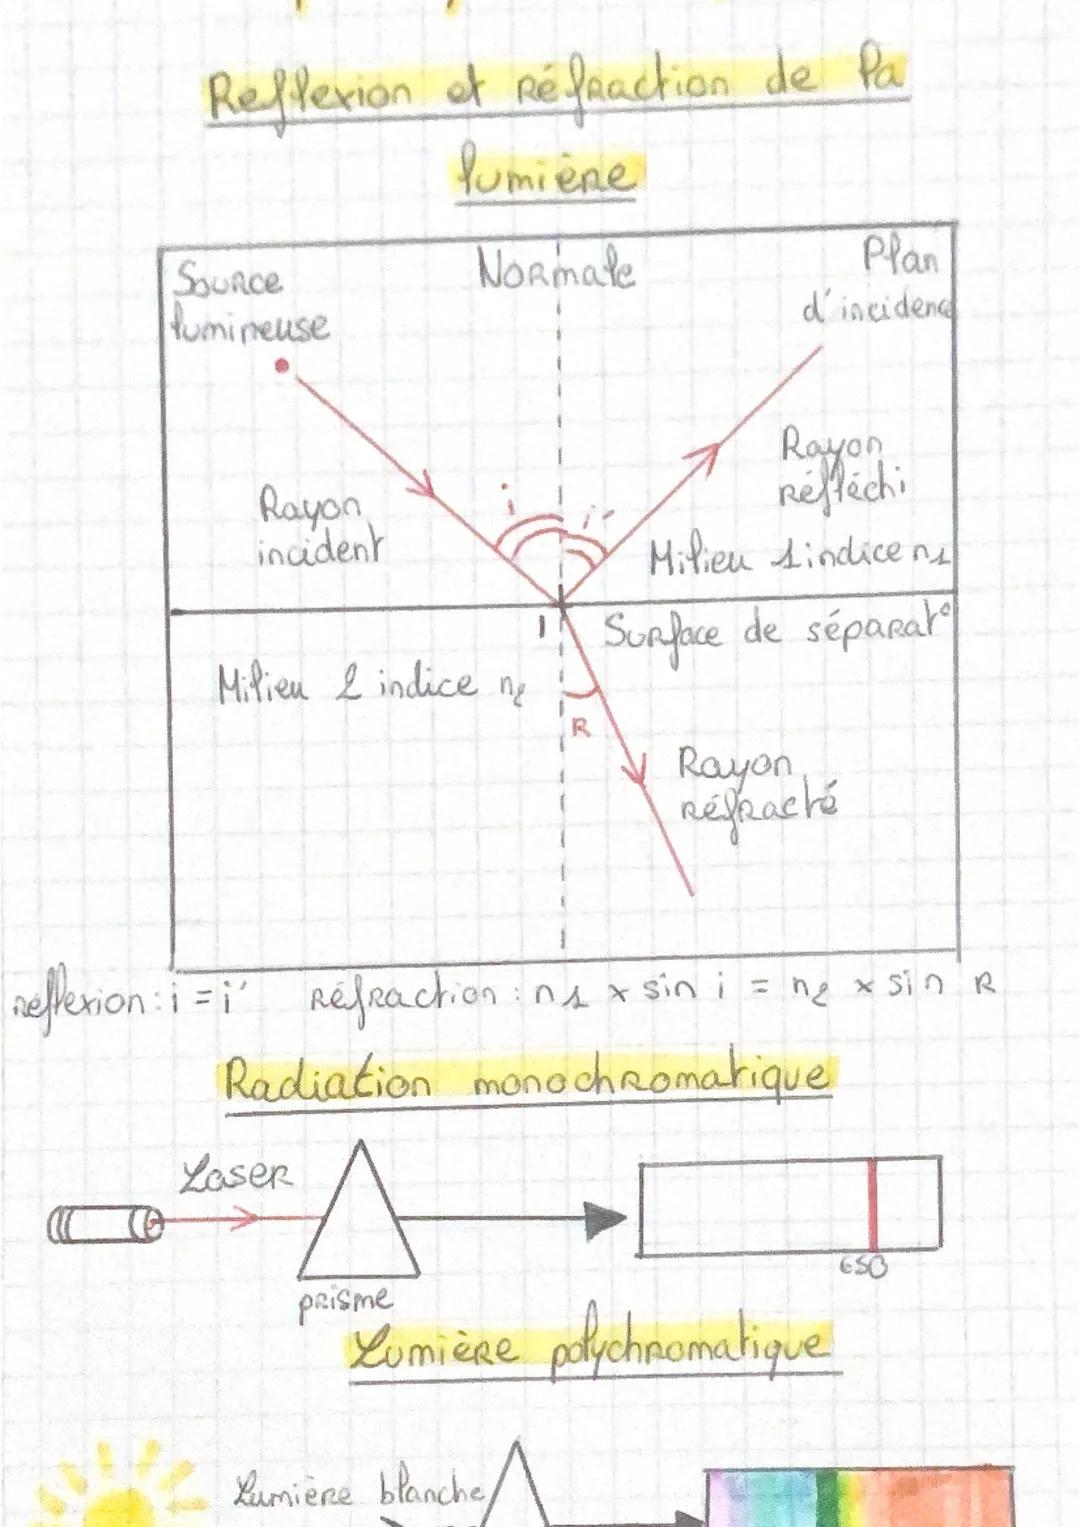 Reflexion et Réfraction de la
lumière
Source
lumineuse
Normale
Plan
d'incidenc
Rayon
incident
i
i'
Rayon
réfléchi
Milieu 1 indice n1
I
Surface de séparat°
Milieu 2 indice n2
R
Rayon
réfracté
réflexion : i = i' Réfraction : n1 x sin i = n2 x sin R
Radiation monochromatique
Laser
prisme
650
Lumière polychromatique
Lumière blanche